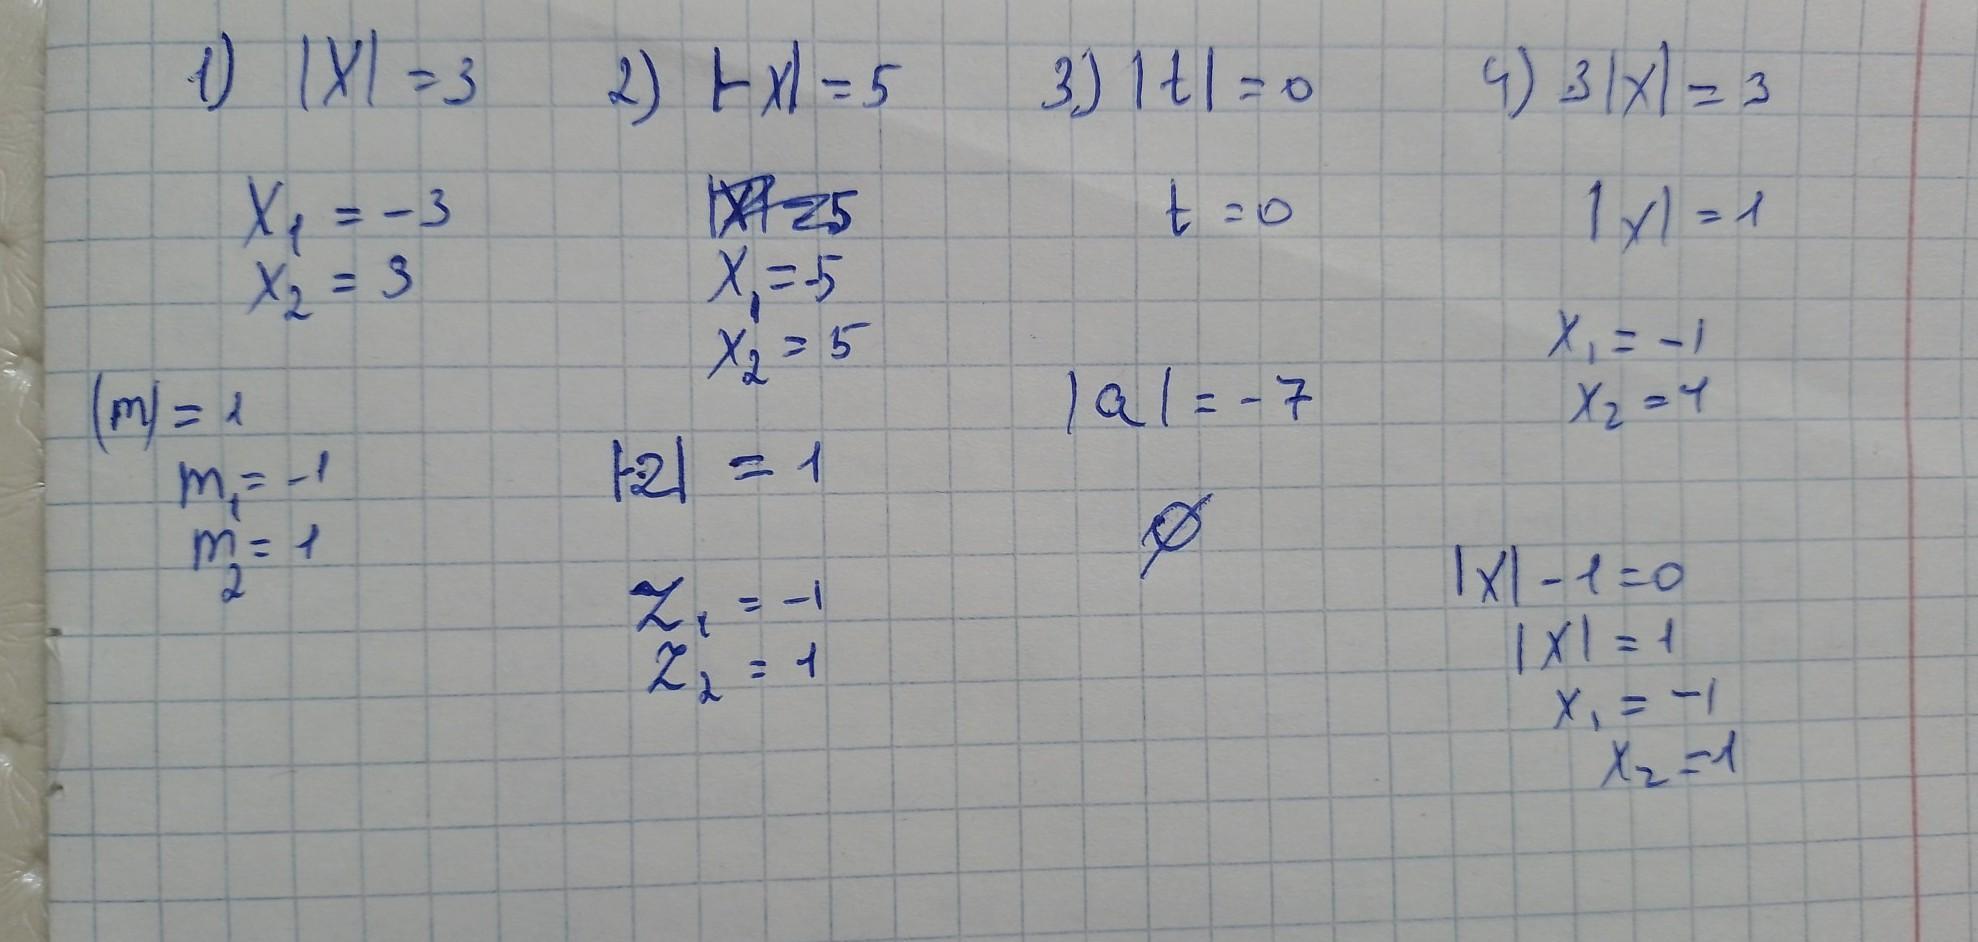 1) |X| = 3
X₁ = -3
X₂ = 3
|m| = 1
m₁ = -1
m₂ = 1
2) |-x| = 5
|X| = 5
X₁ = -5
X₂ = 5
|-z| = 1
Z₁ = -1
Z₂ = 1
3) |t| = 0
t = 0
|a| = -7
∅
4) 3|x| = 3
|x| = 1
X₁ = -1
X₂ = 1
|x| - 1 = 0
|X| = 1
X₁ = -1
X₂ = 1